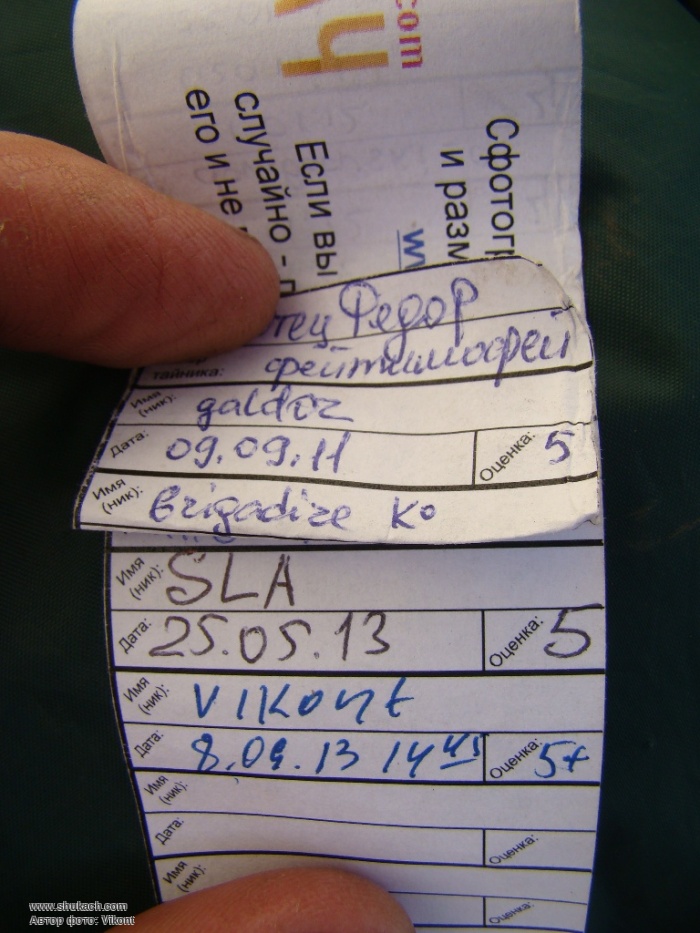 com
Сфотогр
и разм
w
Если вы
случайно - п
его и не
тец Федор
тайника: фейтимофей
Имя (ник): galdoz
Дата: 09.09.11 Оценка: 5
Имя (ник): Brigadire Ko
Имя (ник): SLA
Дата: 25.05.13 Оценка: 5
Имя (ник): Vikont
Дата: 8.09.13 14 45 Оценка: 5+
Имя (ник):
Дата: Оценка:
Имя (ник):
Оценка:
www.shukach.com
Автор фото: Vikont